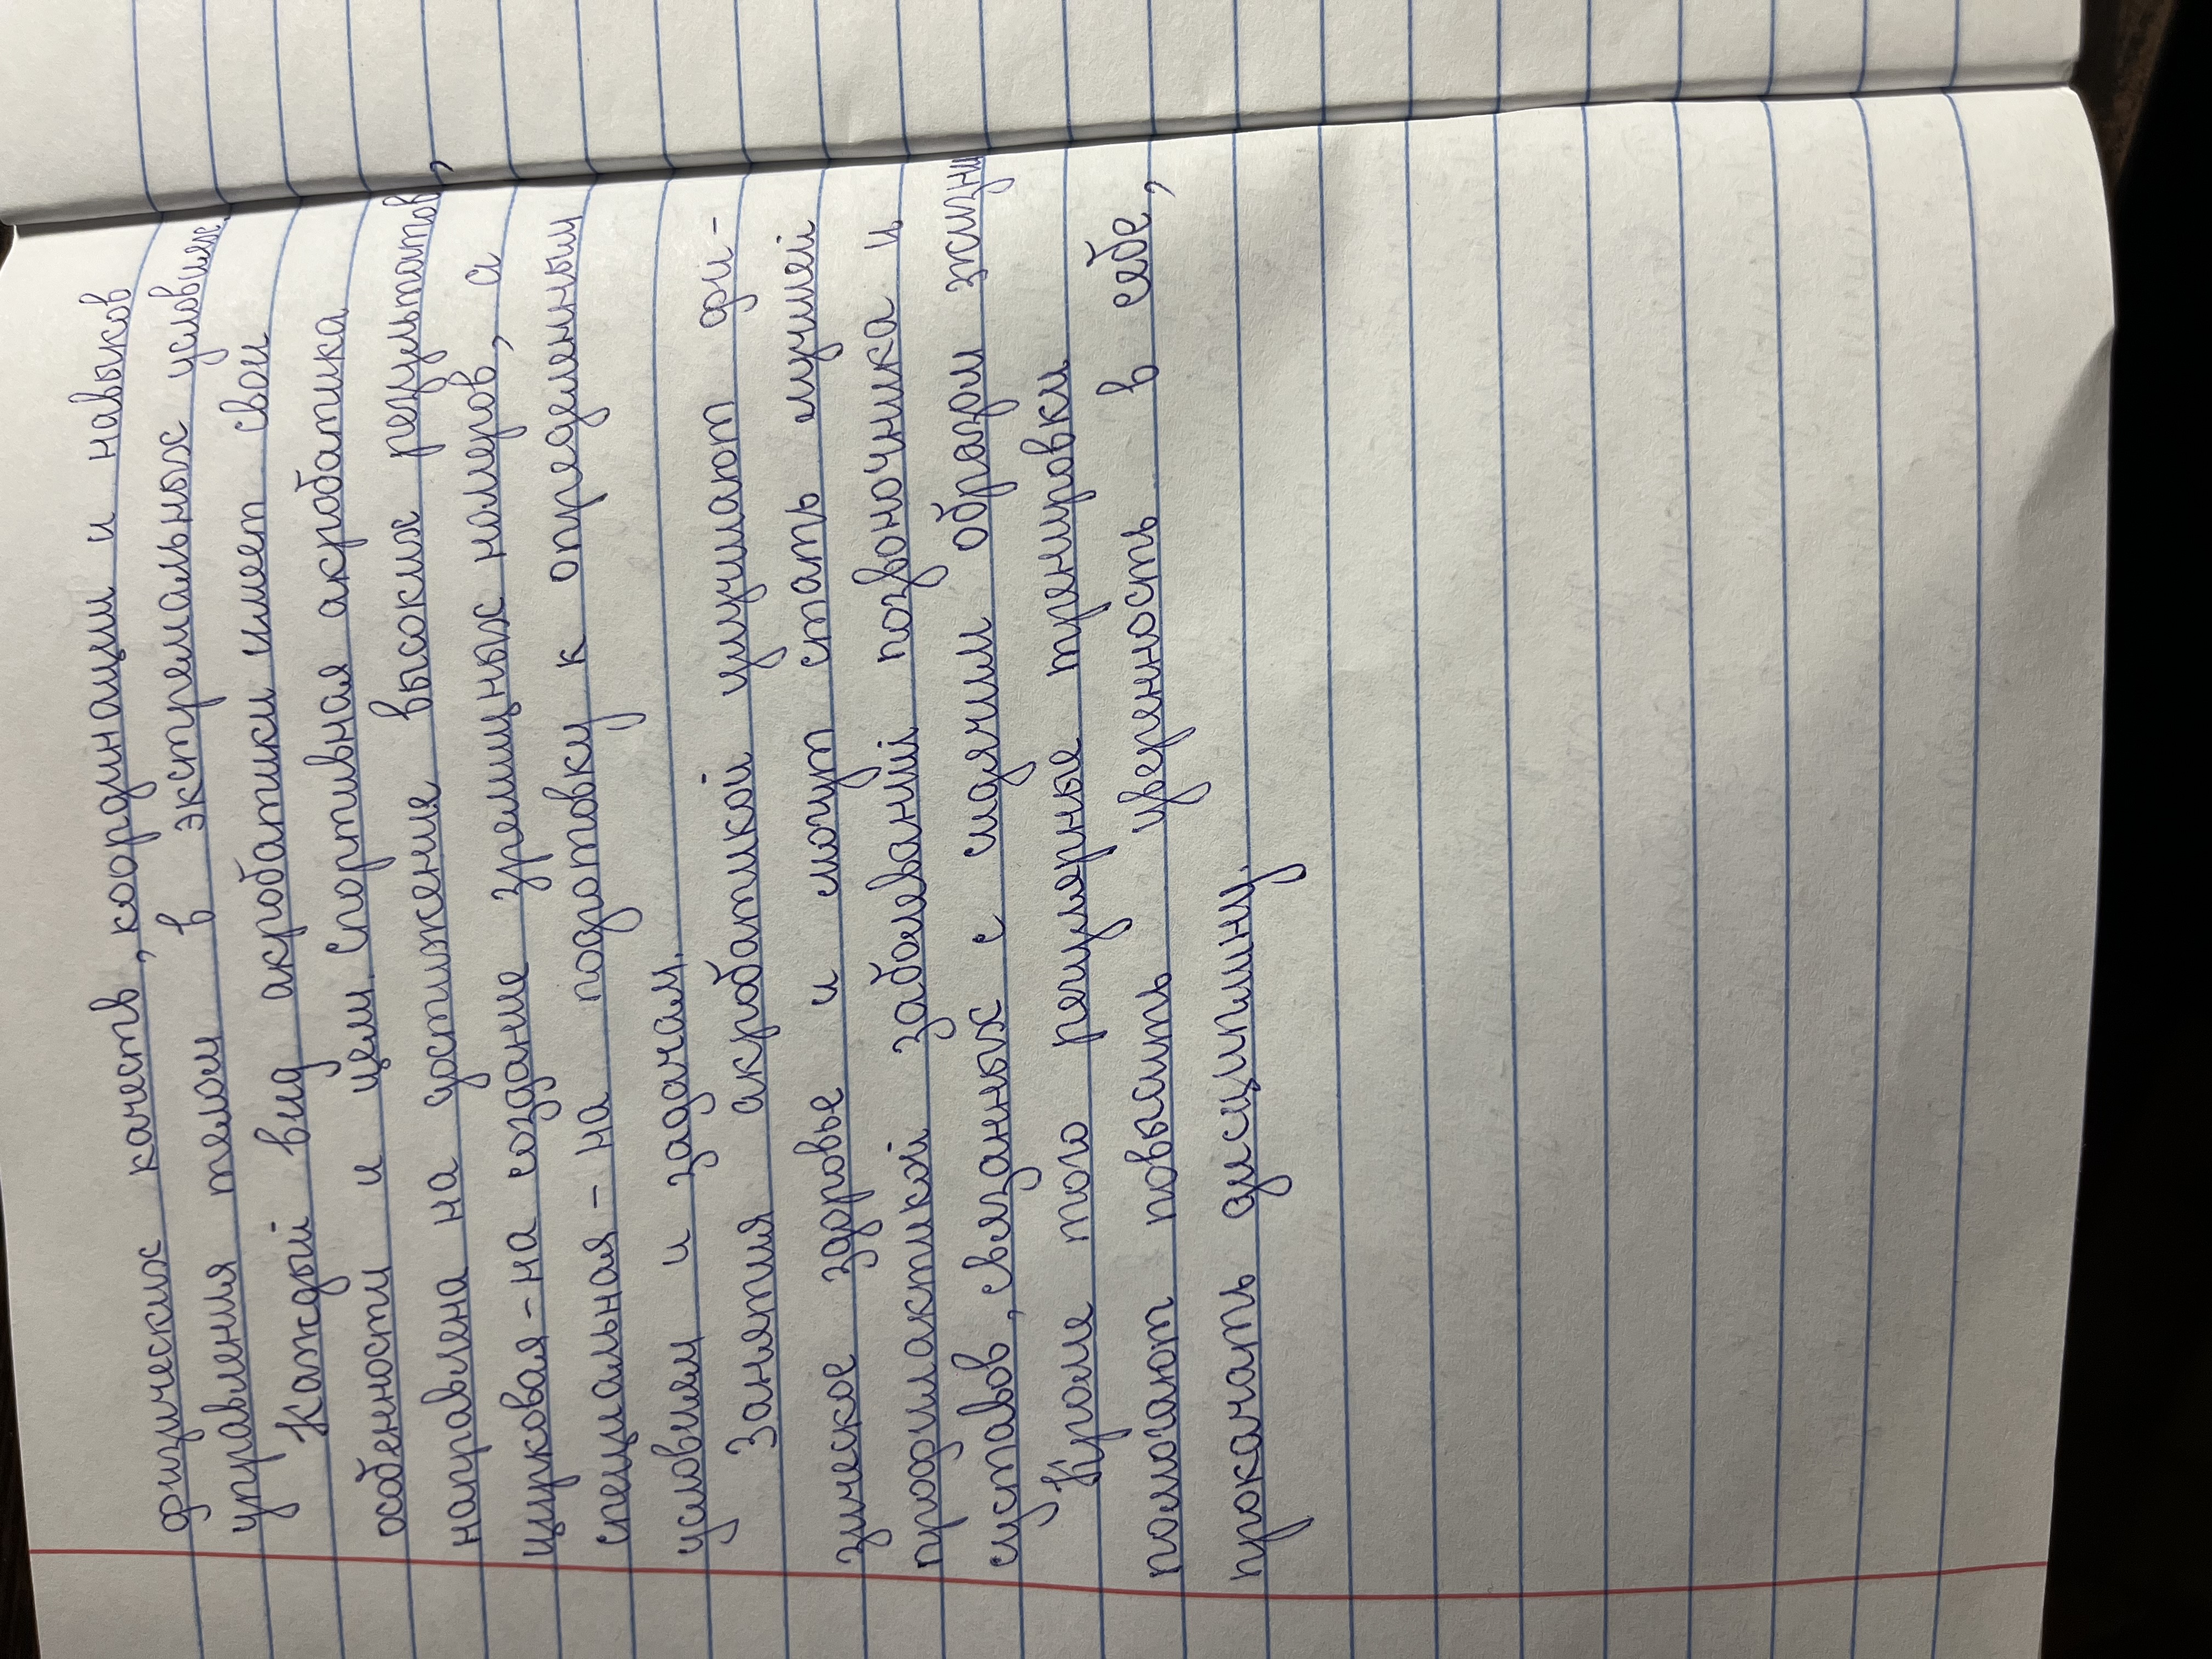 физических качеств, координации и навыков
управления телом в экстремальных условиях.
Каждый вид акробатики имеет свои
особенности и цели. Спортивная акробатика
направлена на достижение высоких результатов,
цирковая - на создание зрелищных номеров, а
специальная - на подготовку к определенным
условиям и задачам.
Занятия акробатикой улучшают фи-
зическое здоровье и могут стать лучшей
профилактикой заболеваний позвоночника и
суставов, связанных с сидячим образом жизни
Кроме того регулярные тренировки
помогают повысить уверенность в себе,
прокачать дисциплину.